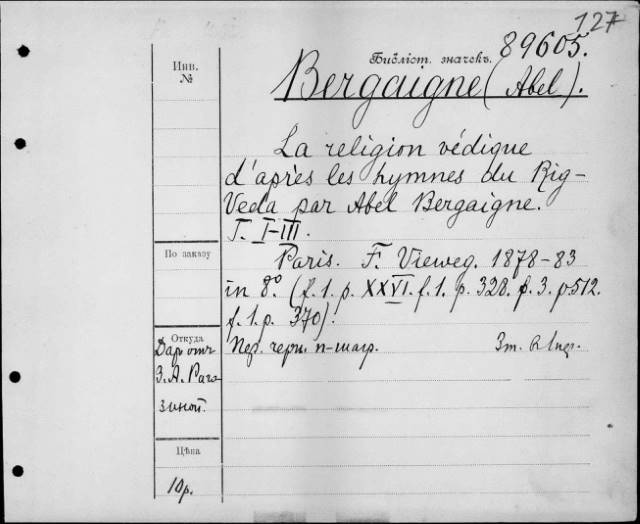 127
Библіот. значекъ. 89605.
Инв.
№
Bergaigne (Abel).
La religion védique
d'après les hymnes du Rig-
Veda par Abel Bergaigne.
T. I-III.
По заказу
Paris. F. Vieweg. 1878-83
in 8º. (f. 1. p. XXVI. f. 1. p. 328. f. 3. p. 512.
f. 1. p. 370).
Откуда
Даръ отъ
З. А. Раго-
зиной.
Пер. черн. п-шагр.
3 т.
Цѣна
10 р.